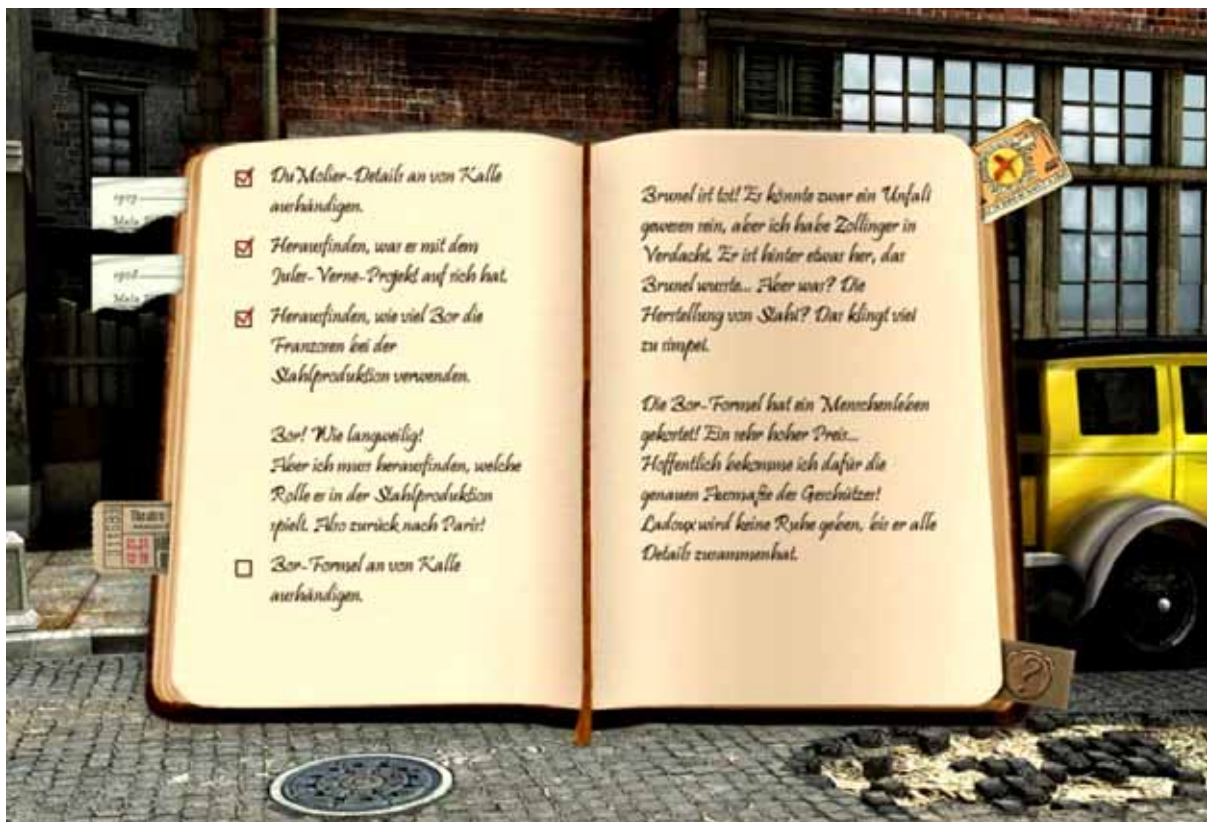 1907
Mala
1908
Mala
Theatre
Du Molier-Details an von Kalle
aushändigen.
Herausfinden, was es mit dem
Jules-Verne-Projekt auf sich hat.
Herausfinden, wie viel Bor die
Franzosen bei der
Stahlproduktion verwenden.
Bor! Wie langweilig!
Aber ich muss herausfinden, welche
Rolle es in der Stahlproduktion
spielt. Also zurück nach Paris!
Bor-Formel an von Kalle
aushändigen.
Brunel ist tot! Es könnte zwar ein Unfall
gewesen sein, aber ich habe Zollinger in
Verdacht. Er ist hinter etwas her, das
Brunel wusste... Aber was? Die
Herstellung von Stahl? Das klingt viel
zu simpel.
Die Bor-Formel hat ein Menschenleben
gekostet! Ein sehr hoher Preis...
Hoffentlich bekomme ich dafür die
genauen Ausmaße der Geschütze!
Ladoux wird keine Ruhe geben, bis er alle
Details zusammenhat.